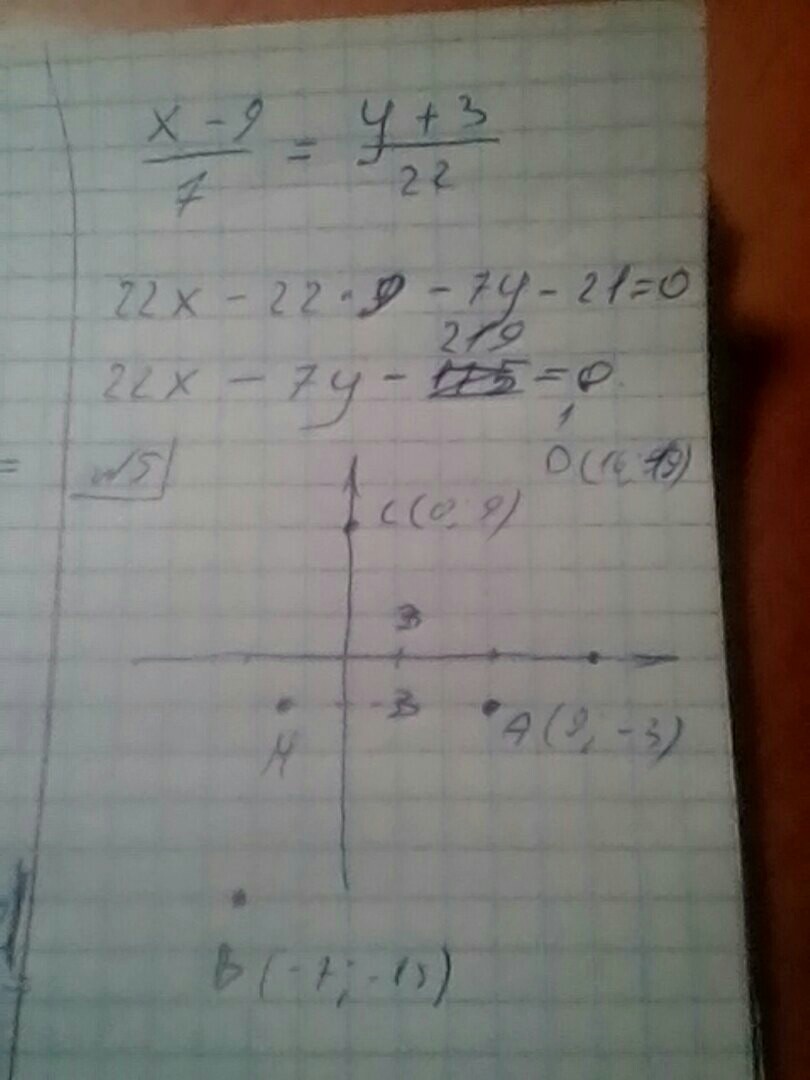 x - 9 / 7 = y + 3 / 22
22x - 22 · 9 - 7y - 21 = 0
219
22x - 7y - 175 = 0
№5
C(0; 9)
3
-3
A(9; -3)
M
B(-7; -15)